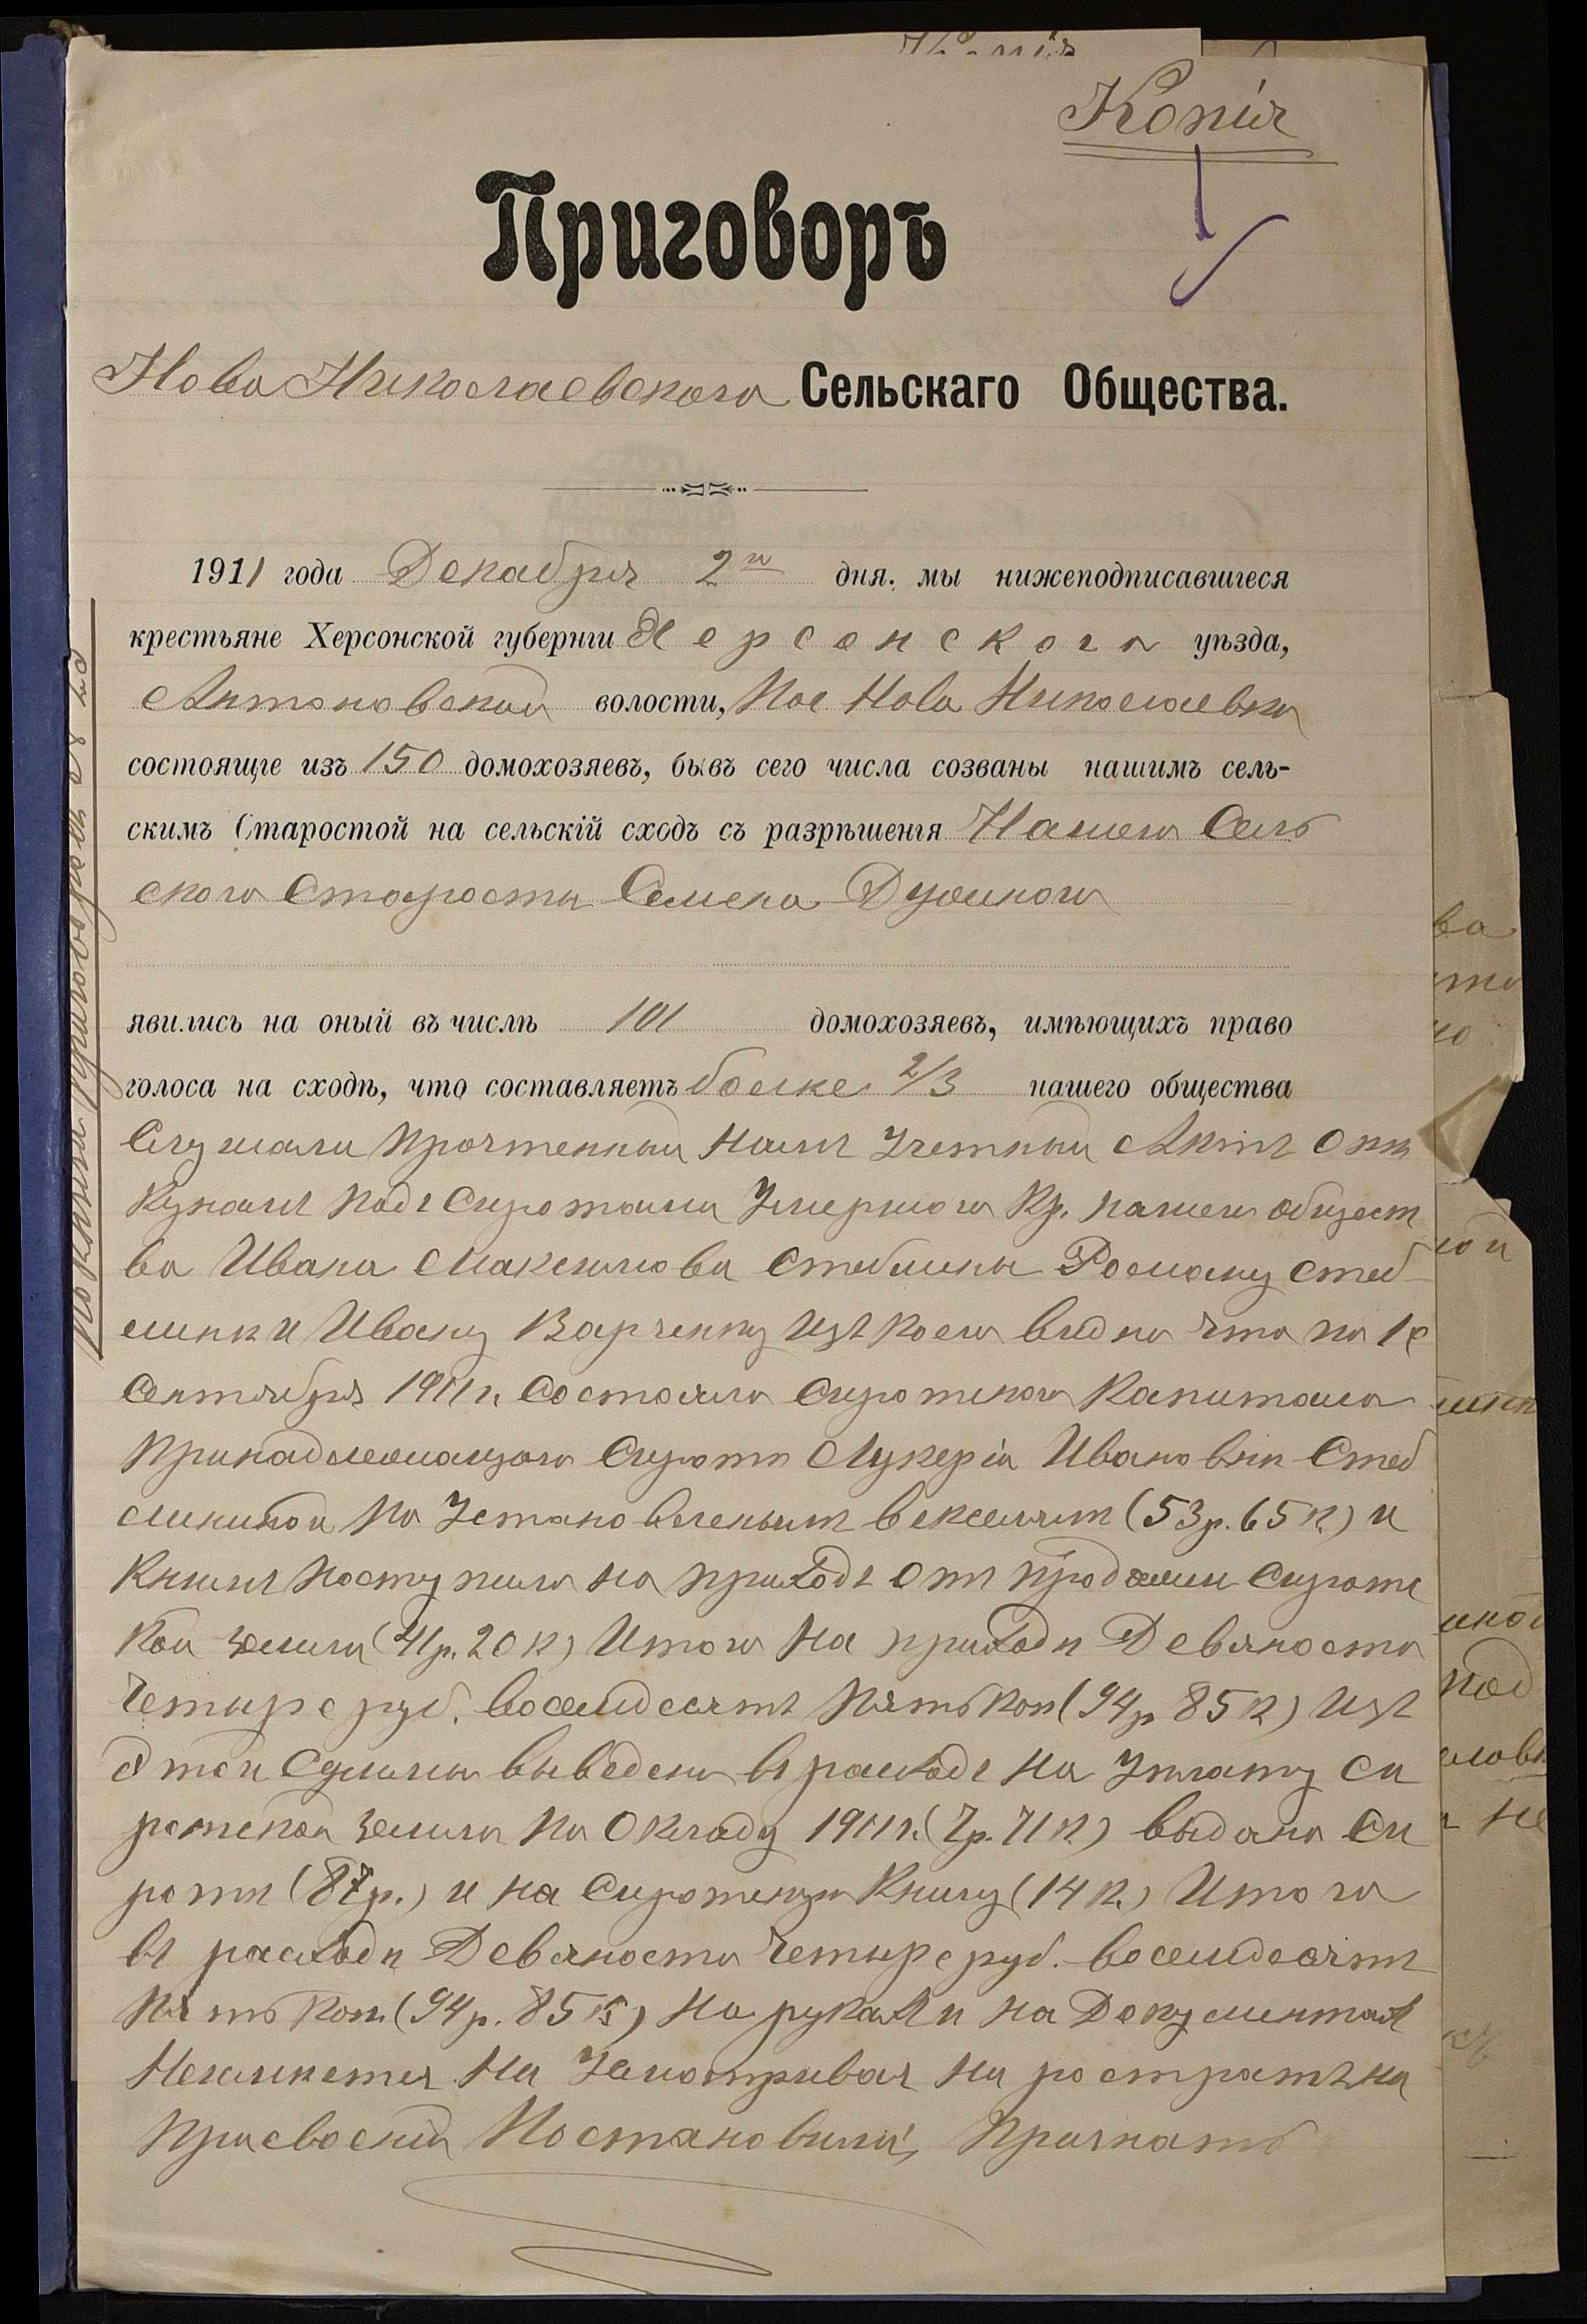 Копія
Приговоръ
Ново Николаевскаго Сельскаго Общества.
1911 года Декабря 2го дня. мы нижеподписавшіеся
крестьяне Херсонской губерніи Херсонского уѣзда,
Антоновской волости, Пос Ново Николаевки
состоящіе изъ 150 домохозяевъ, бывъ сего числа созваны нашимъ сель-
скимъ Старостой на сельскій сходъ съ разрѣшенія Нашего Сель
ского Старосты Семена
явились на оный въ числѣ 101 домохозяевъ, имѣющихъ право
голоса на сходѣ, что составляетъ болѣе 2/3 нашего общества
Слушали прочтенный намъ Учетный Актъ Опѣ
кунамъ надъ Сиротами Умершого Кр. нашего общест
ва Ивана Максимова Стеблины Роману Стеб
линѣ и Ивану Варченку Изъ коего видно что по 1е
Сентября 1911 г. Состояло Сиротского Капитала
Принадлежащого Сиротѣ Лукеріи Ивановнѣ Стеб
лининой По Установленымъ векселямъ (53 р. 65 к) и
Книгѣ поступило на приходъ отъ продажи Сиротс
кой земли (41 р. 20 к) Итого на приходѣ Девяносто
Четыре руб. восемдесятъ пять коп (94 р 85 к) Изъ
этой Суммы выведено въ расходъ на Уплату Си
ротской земли по Окладу 1911 г. (7 р. 71 к) выдано Си
ротѣ (87 р.) и на Сиротскую Книгу (14 к.) Итого
въ расходѣ Девяносто Четыре руб. восемдесятъ
пять коп. (94 р. 85 к) На рукахъ и на Документахъ
Неимѣется Не Усмотривая ни ростратъ ни
Присвоеній Постановили, Признать
по книгѣ приговоровъ за №